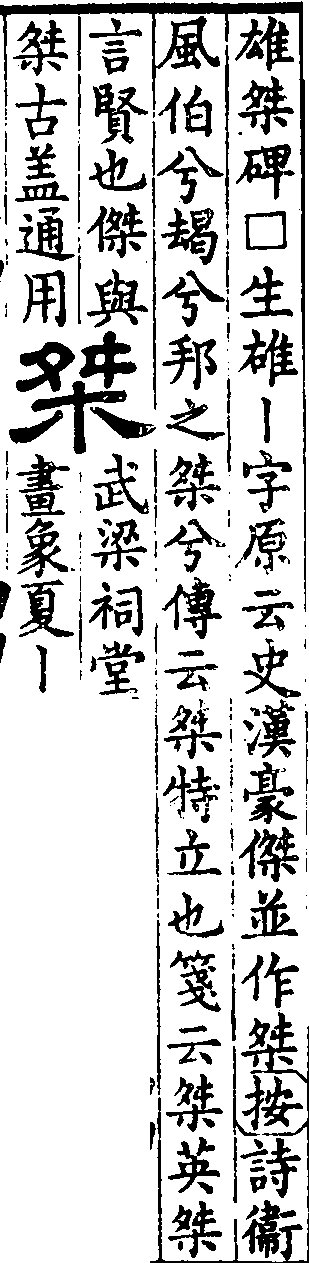 雄桀碑□生雄丨字原云史漢豪傑並作桀按詩衞
風伯兮朅兮邦之桀兮傳云桀特立也箋云桀英桀
言賢也傑與
桀古盖通用
桀
武梁祠堂
畫象夏丨